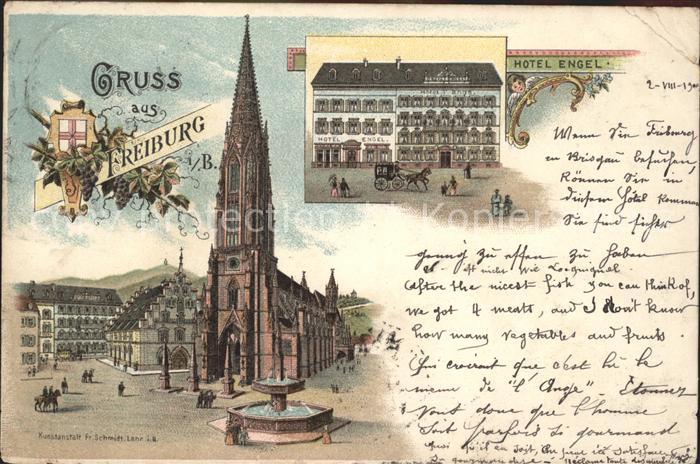 GRUSS
aus
FREIBURG
i/B.
HOTEL ENGEL.
HOTEL ENGEL.
2-VIII-19
Wenn Sie Fribourg
en Brisgau besuchen,
Können Sie in
diesem Hôtel kommen
Sie sind sicher
genug zu essen zu haben
After the nicest fish you can think of,
we got 4 meats, and I don't know
how many vegetables and fruits.
Qui croirait que c'est ici le
menu de "l'Ange" Etonnez
Vous donc que l'homme
soit parfois si gourmand
quoi qu'il en soit,
Kunstanstalt Fr. Schmidt, Lahr i.B.